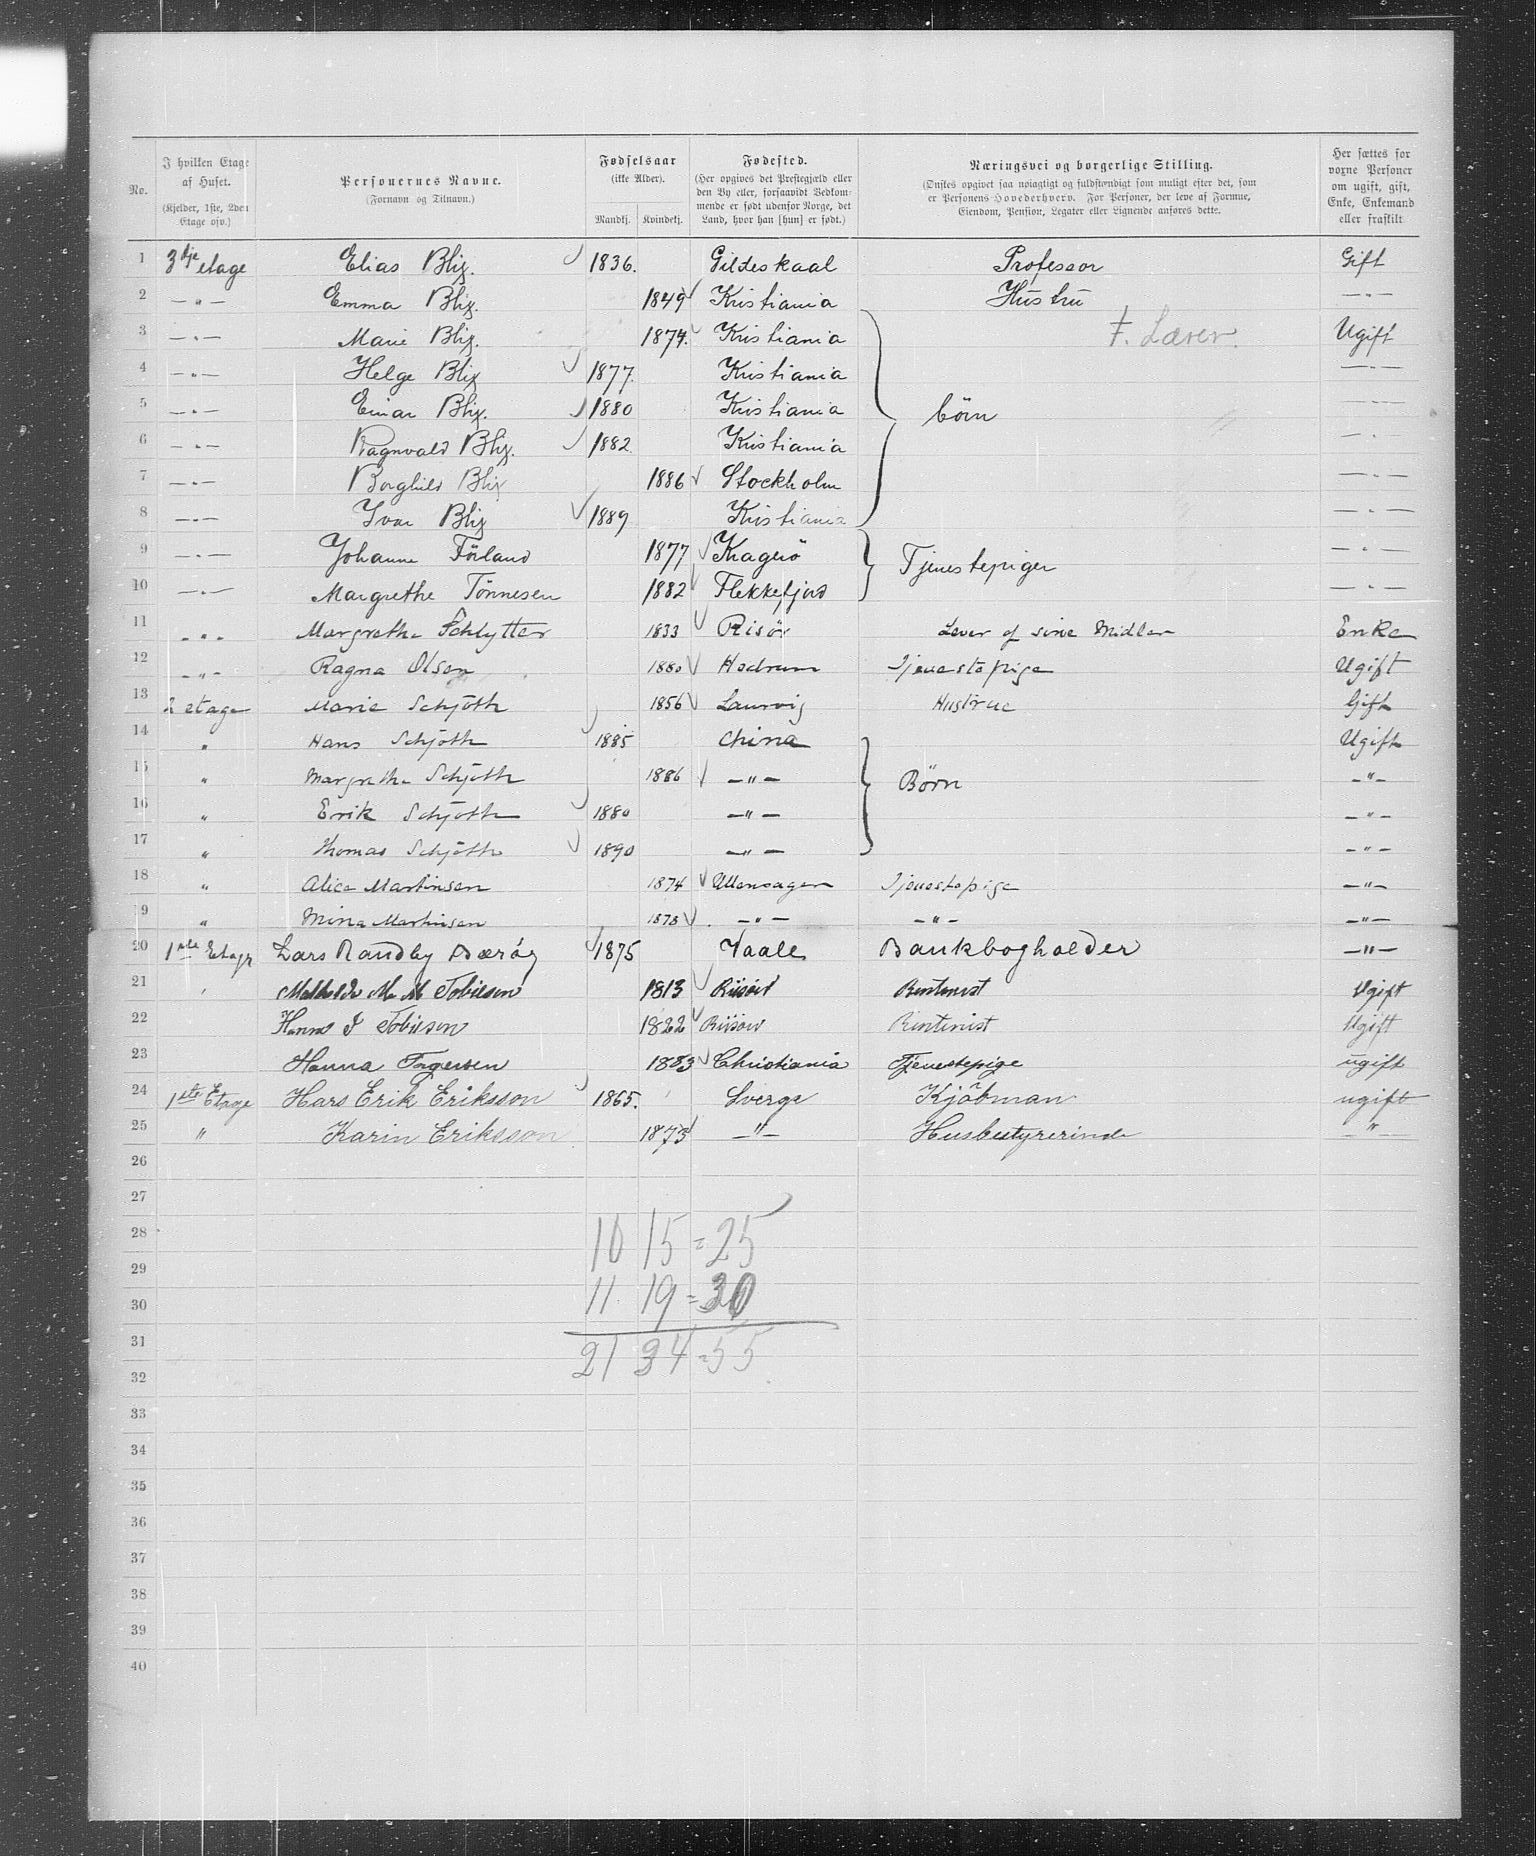 No. | I hvilken Etage af Huset. (Kjelder, 1ste, 2den Etage osv.) | Personernes Navne. (Fornavn og Tilnavn.) | Fødselsaar (ikke Alder). Mandkj. Kvindekj. | Fødested. (Her opgives det Prestegjæld eller den By eller, forsaavidt Vedkommende er født udenfor Norge, det Land, hvor han [hun] er født.) | Næringsvei og borgerlige Stilling. (Ønskes opgivet saa nøiagtigt og fuldstændigt som muligt efter det, som er Personens Hovederhverv. For Personer, der leve af Formue, Eiendom, Pension, Legater eller Lignende anføres dette. | Her sættes for voxne Personer om ugift, gift, Enke, Enkemand eller fraskilt
1 3dje etage Elias Blix. 1836. Gildeskaal Professor Gift
2 —„— Emma Blix. 1849 Kristiania Hustru —„—
3 —„— Marie Blix. 1874. Kristiania f. Lærer. Ugift
4 —„— Helge Blix 1877. Kristiania —„—
5 —„— Einar Blix. 1880 Kristiania börn —„—
6 —„— Ragnvald Blix. 1882. Kristiania —„—
7 —„— Borghild Blix 1886 Stockholm —„—
8 —„— Ivar Blix 1889 Kristiania —„—
9 —„— Johanne Förland 1877 Kragerö Tjenestepiger —„—
10 —„— Margrethe Tönnesen 1882 Flekkefjord —„—
11 „ „ „ Margrethe Schlytter 1833 Risör Lever af sine Midler Enke
12 „ „ „ Ragna Olsen 1880 Hedrum Tjenestepige Ugift
13 2 etage Marie Schjöth 1856 Laurvig Hustrue Gift
14 „ Hans Schjöth 1885 China Ugift
15 „ Margrethe Schjöth 1886 —„— Børn —„—
16 „ Erik Schjöth 1880 —„— —„—
17 „ Thomas Schjöth 1890 —„— —„—
18 „ Alice Martinsen 1874 Ullensager Tjenestepige —„—
19 „ Mina Martinsen 1878 —„— —„— —„—
20 1ste Etage Lars Randby 1875 Vaale Bankbogholder —„—
21 Mathilde M. M Tobiesen 1813 Risöer Rentenist Ugift
22 Hanna J Tobiesen 1822 Risöer Rentenist Ugift
23 Hanna Torgersen 1883 Christiania Tjenestepige ugift
24 1ste Etage Hars Erik Eriksson 1865. Sverge Kjöbman ugift
25 „ Karin Eriksson 1873 —„— Husbestyrerinde —„—
26
27
28 10 15 = 25
29
30 11 19 = 30
31
32 21 34 = 55
33
34
35
36
37
38
39
40